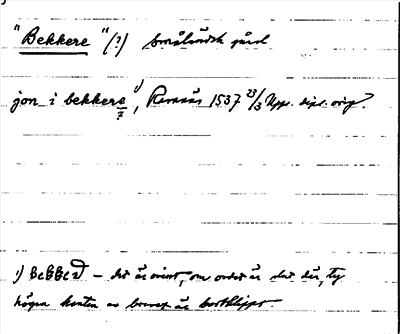 "Bekkere" (?) Småländsk gård
jon i bekkere ¹⁾, Ramnäs 1537 23/3 Upps. dipl. orig?
?
1) bekker – det är ovisst, om ordet är slut där, ty
högra kanten av brevet är bortklippt.